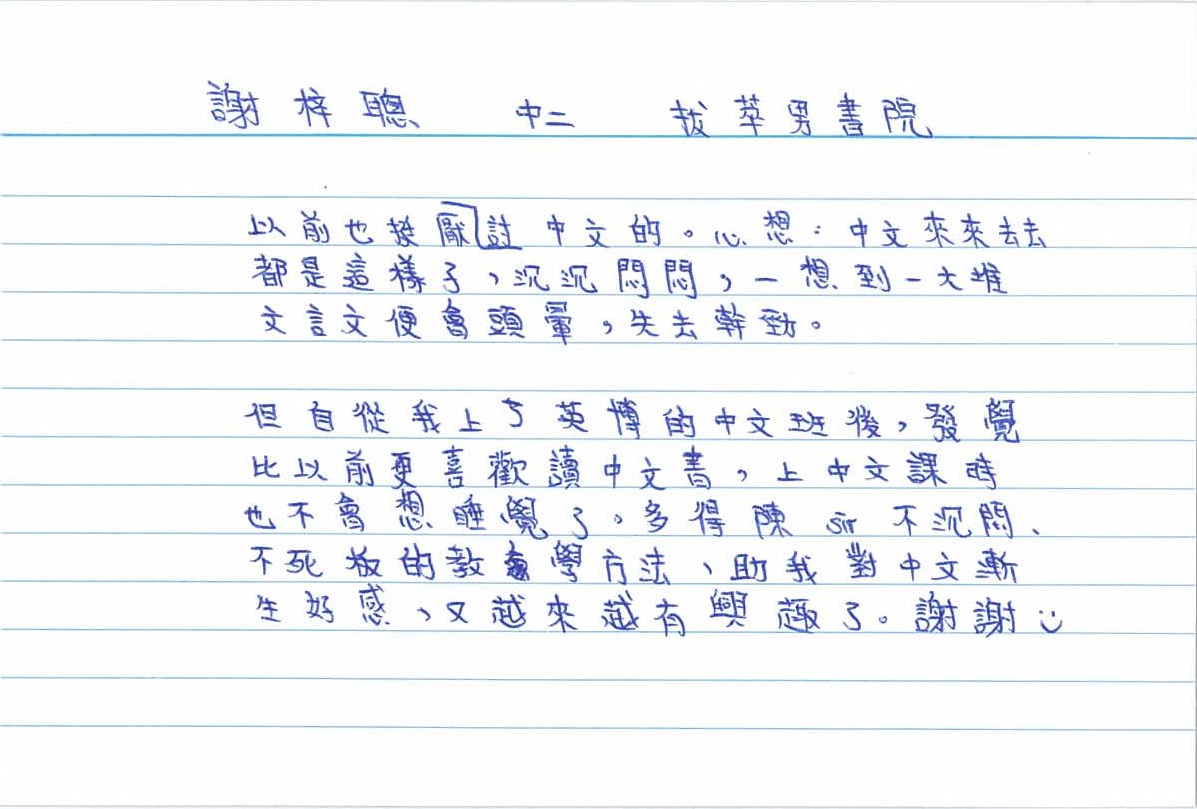 謝梓聰 中二 拔萃男書院
以前也挺厭討中文的。心想：中文來來去去
都是這樣子，沉沉悶悶，一想到一大堆
文言文便會頭暈，失去幹勁。
但自從我上了英博的中文班後，發覺
比以前更喜歡讀中文書，上中文課時
也不會想睡覺了。多得陳 sir 不沉悶、
不死板的教學方法、助我對中文漸
生好感，又越來越有興趣了。謝謝